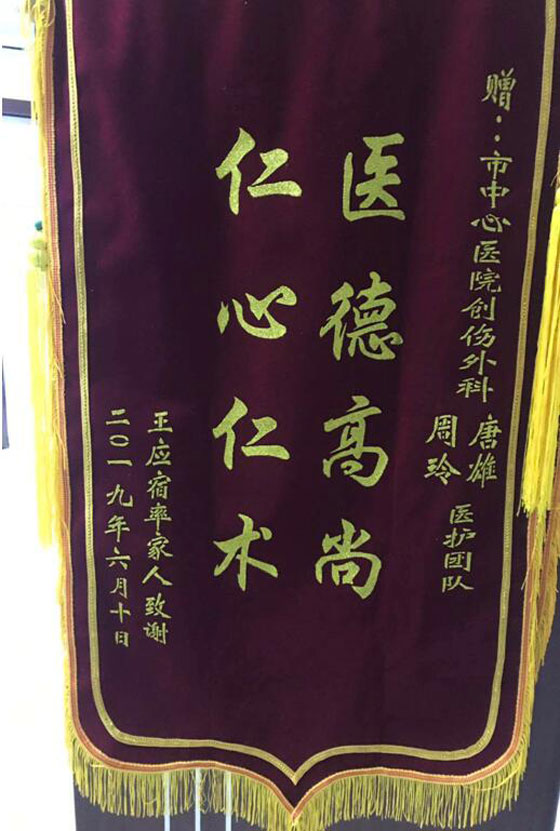 赠：市中心医院创伤外科
唐雄
周玲
医护团队
医德高尚
仁心仁术
王应宿率家人致谢
二〇一九年六月十日